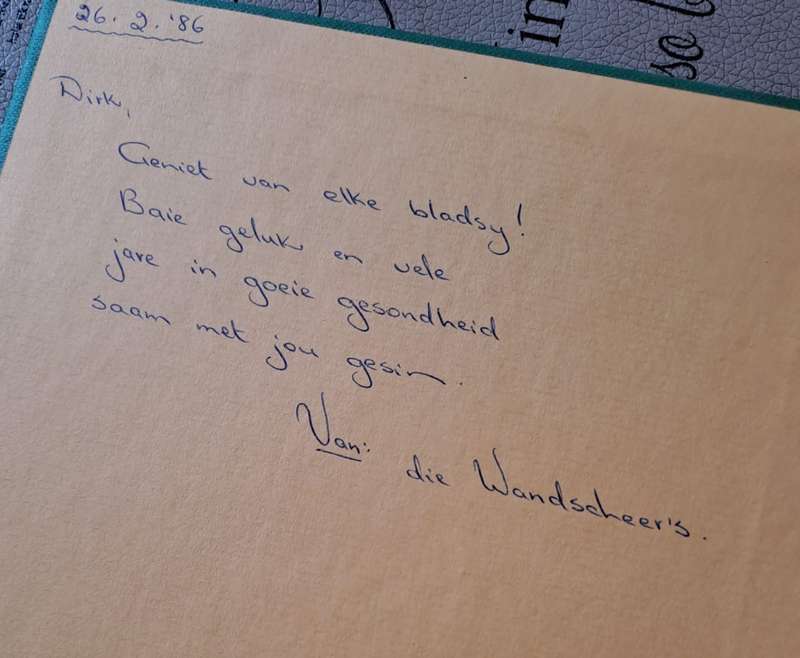 26. 2. '86
Dirk,
Geniet van elke bladsy!
Baie geluk en vele
jare in goeie gesondheid
saam met jou gesin.
Van: die Wandscheer's.
in
so